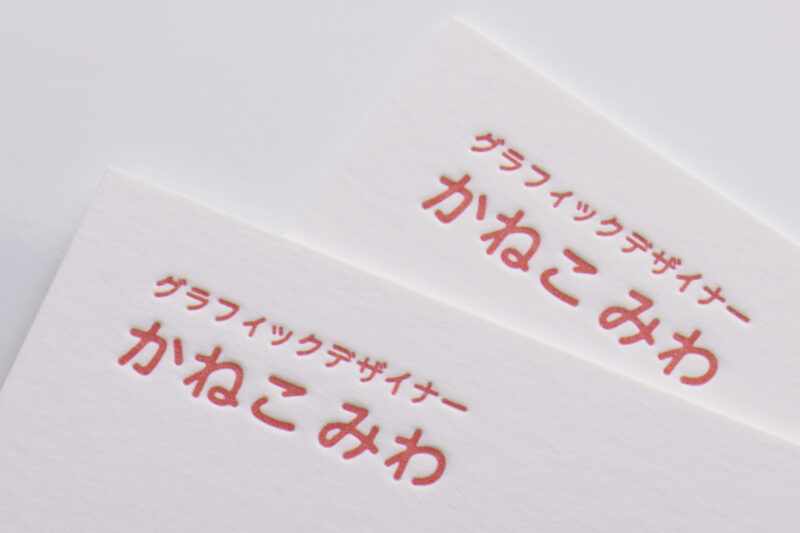 グラフィックデザイナー
かねこ みわ
グラフィックデザイナー
かねこ みわ